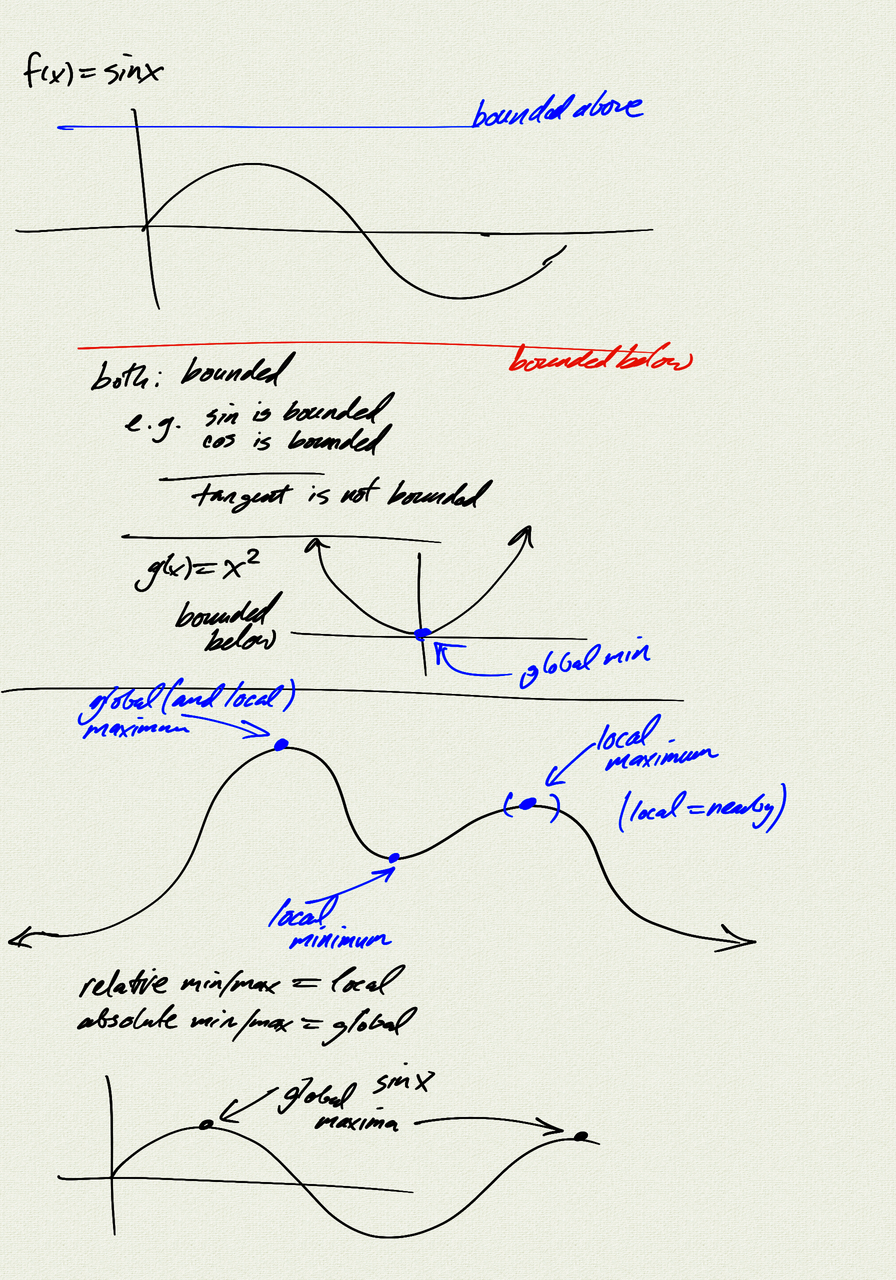 f(x) = sinx
bounded above
bounded below
both: bounded
e.g. sin is bounded
cos is bounded
tangent is not bounded
g(x) = x²
bounded
below
global min
global (and local)
maximum
local
maximum
( )
(local = nearby)
local
minimum
relative min/max = local
absolute min/max = global
sinx
global
maxima